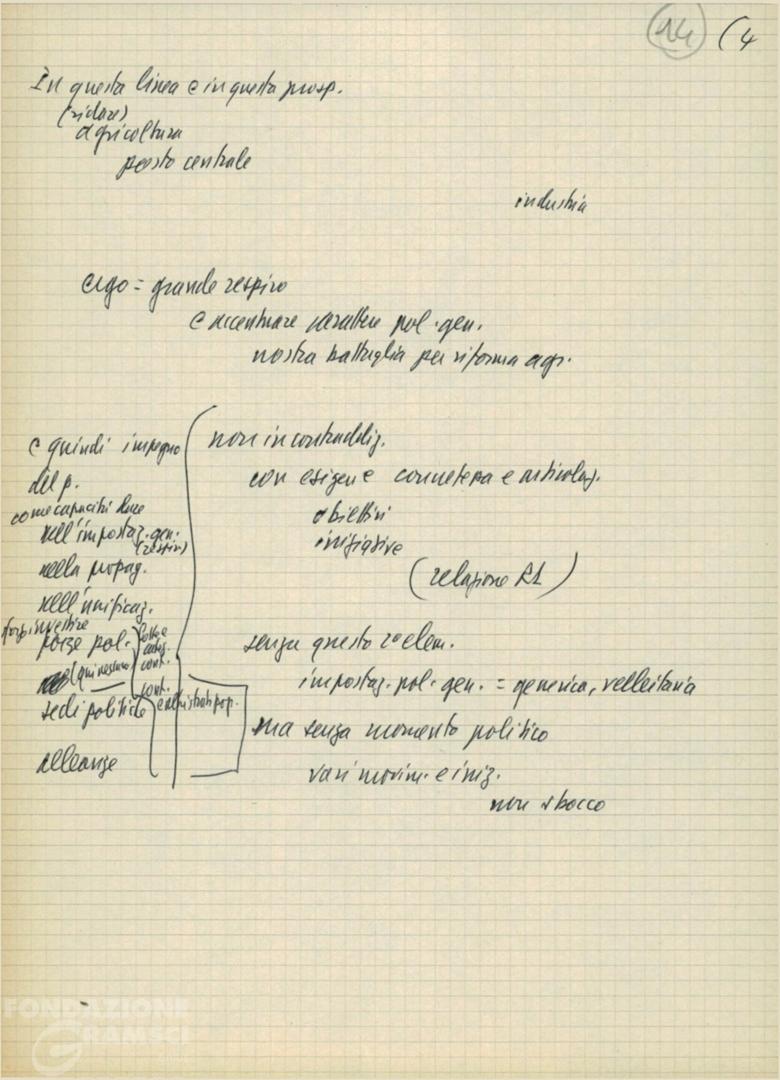 14 (4
In questa linea e in questa prosp.
(ridare)
agricoltura
posto centrale
industria
ergo = grande respiro
e accentuare carattere pol. gen.
nostra battaglia per riforma agr.
e quindi impegno
del p.
come capacità
nell'impostaz. gen.
(respiro)
nella propag.
nell'unificaz.
investire
forze pol.
qui nessuna
cont.
sedi politiche
pop.
alleanze
non in contraddiz.
con esigenze concretezza e articolaz.
obiettivi
iniziative
(relazione R1)
senza questo 2° elem.
impostaz. pol. gen. = generica, velleitaria
ma senza momento politico
vari movim. e iniz.
non sbocco
FONDAZIONE
GRAMSCI